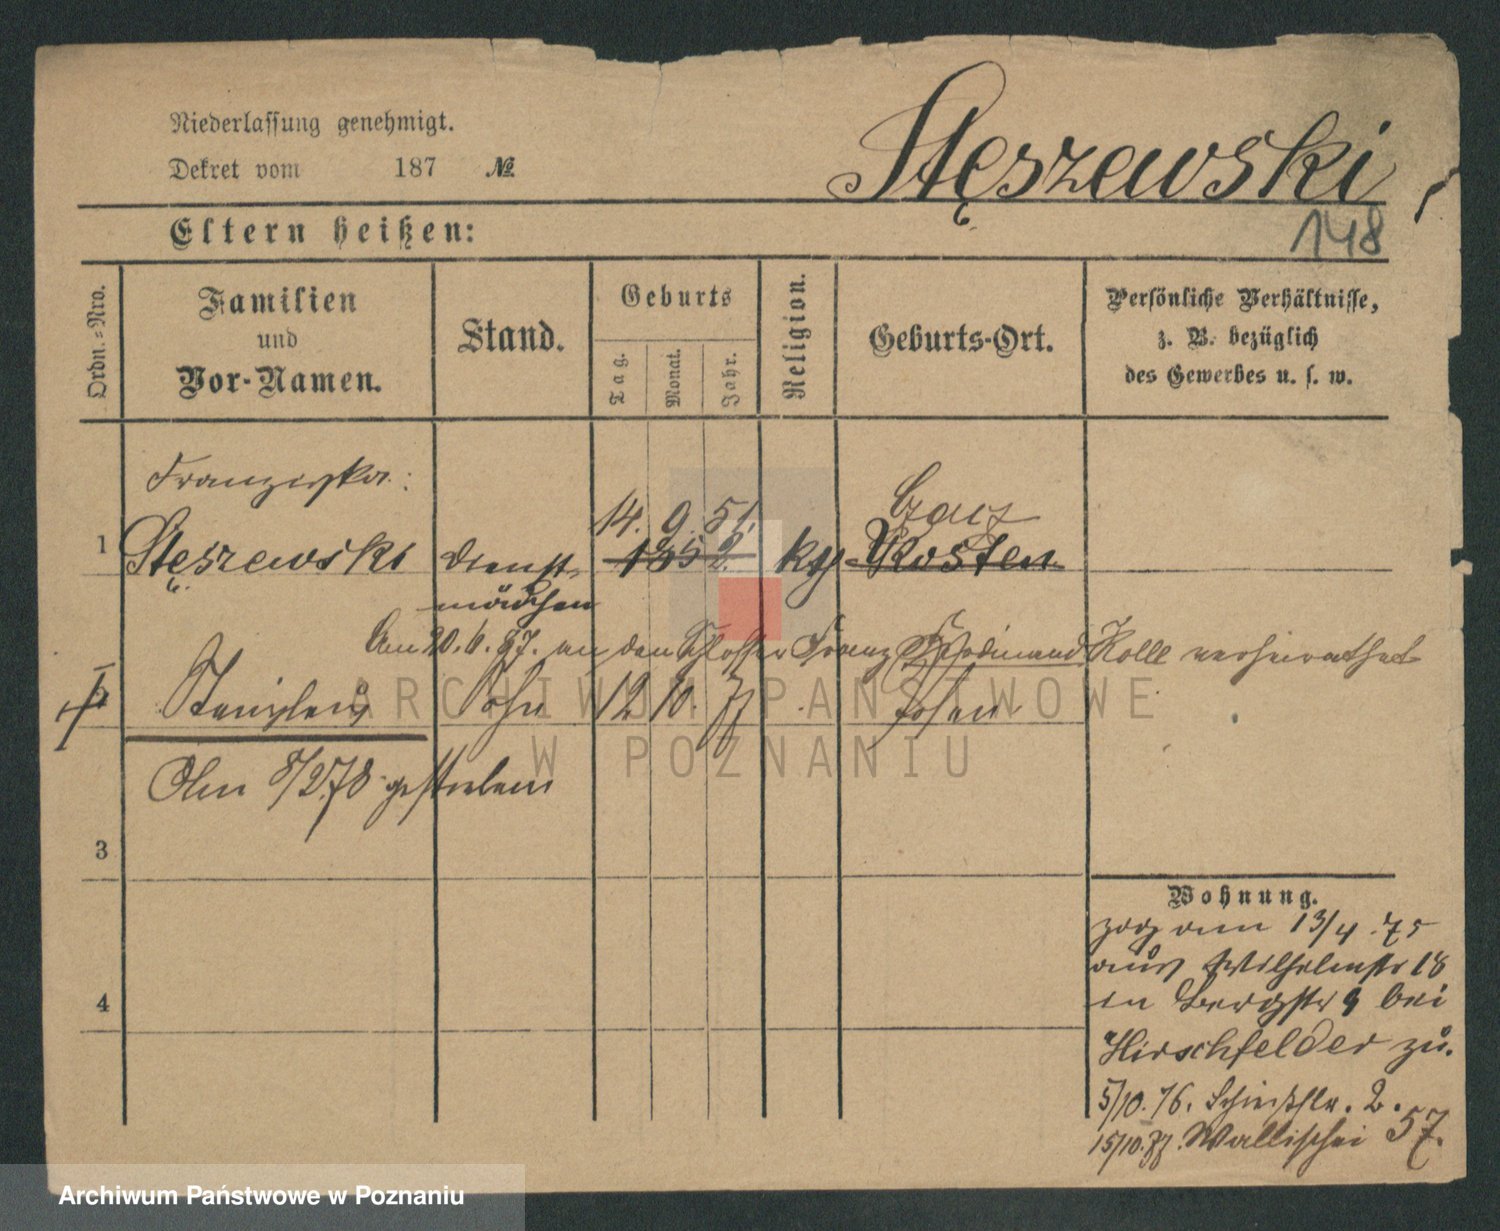 Niederlassung genehmigt.
Dekret vom 187 №
Stęszewski
148
Eltern heißen:
Ordn.-Nro.
Familien
und
Vor-Namen.
Stand.
Geburts
Tag.
Monat.
Jahr.
Religion.
Geburts-Ort.
Persönliche Verhältnisse,
z. B. bezüglich
des Gewerbes u. s. w.
Franziska
14. 9. 51.
1 Stęszewski Dienst- 1852 kth Kosten
mädchen
Am 20. 6. 87. an den Schlosser Franz Ferdinand Kolle verheirathet
Stanislaus Sohn 12 10. 77 Posen
Am 8/2 78 gestorben
3
4
Wohnung.
zog am 13/4. 75
aus Wilhelmstr 18
in Bergstr 9 bei
Hirschfelder zu.
5/10. 76. Schießstr. 2.
15/10. 77. Wallischei 57.
ARCHIWUM PAŃSTWOWE
W POZNANIU
Archiwum Państwowe w Poznaniu